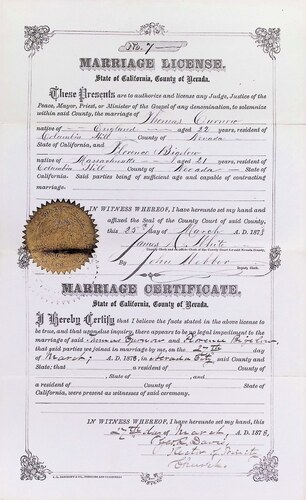 No. 7
MARRIAGE LICENSE.
State of California, County of Nevada.
These Presents are to authorize and license any Judge, Justice of the
Peace, Mayor, Priest, or Minister of the Gospel of any denomination, to solemnize
within said County, the marriage of Thomas
native of England aged 22 years, resident of
Columbia Hill County of Nevada
State of California, and Florence Bigelow
native of Massachusetts aged 21 years, resident of
Columbia Hill County of Nevada State of
California. Said parties being of sufficient age and capable of contracting
marriage.
IN WITNESS WHEREOF, I have hereunto set my hand and
affixed the Seal of the County Court of said County,
this 25th day of March A. D. 1878
James White
By John Webber
Deputy Clerk.
MARRIAGE CERTIFICATE.
State of California, County of Nevada.
I Hereby Certify that I believe the facts stated in the above license to
be true, and that upon due inquiry, there appears to be no legal impediment to the
marriage of said Thomas and Florence Bigelow
that said parties were joined in marriage by me, on the 27th day
of March, A. D. 1878, in Nevada City said County and
State; that a resident of County
of , State of , and
a resident of County of , State of
California, were present as witnesses of said ceremony.
IN WITNESS WHEREOF, I have hereunto set my hand this
27th day of March, A. D. 1878,
Davis
Rector of Trinity
Church